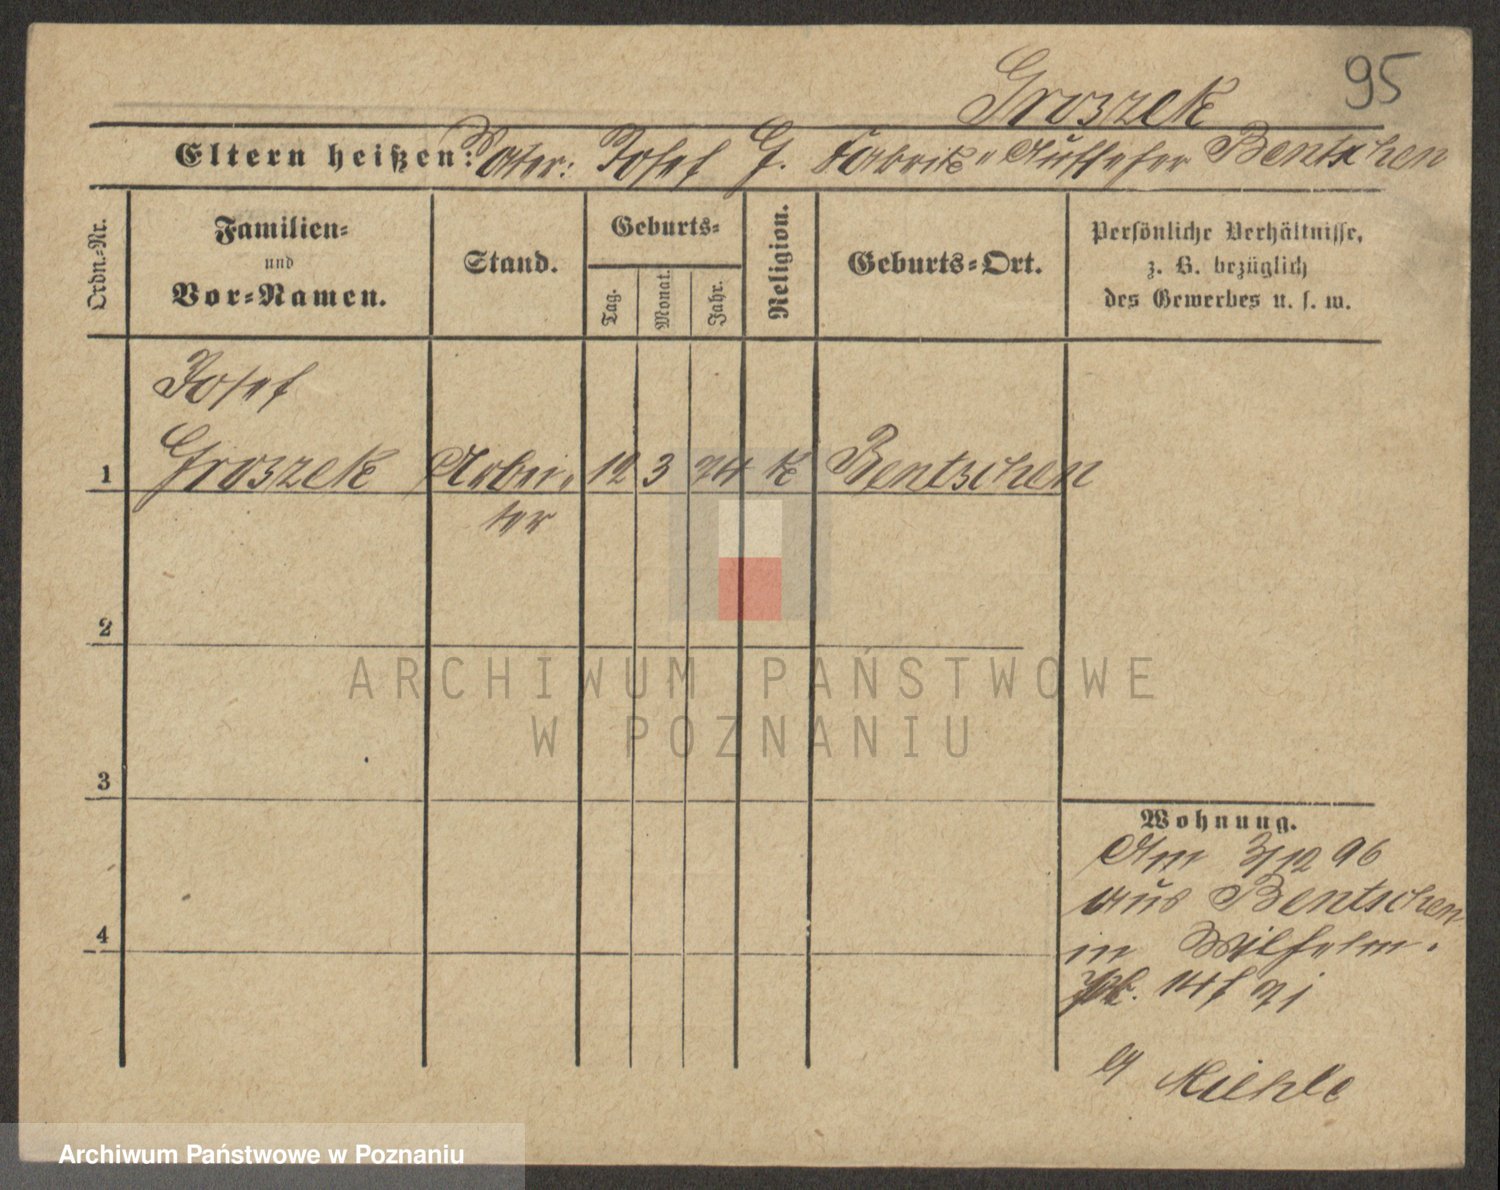 95
Groszek
Eltern heißen: Vater: Josef G. Fabrik-Aufseher Bentschen
Ordn.-Nr.
Familien-
und
Vor-Namen.
Stand.
Geburts-
Tag.
Monat.
Jahr.
Religion.
Geburts-Ort.
Persönliche Verhältnisse,
z. B. bezüglich
des Gewerbes u. s. w.
Josef
1 Groszek Arbei- 12 3 74 k Bentschen
ter
2
ARCHIWUM PAŃSTWOWE
W POZNANIU
3
4
Wohnung.
Am 3/12 96
aus Bentschen
in Wilhelm.
14
Miehle
Archiwum Państwowe w Poznaniu